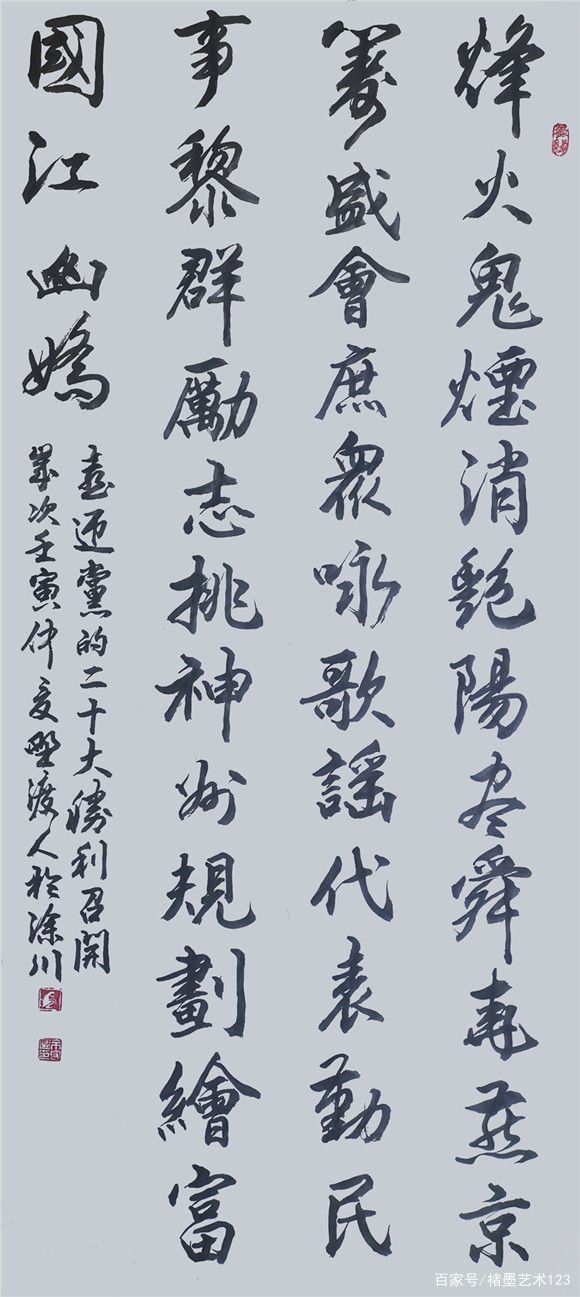 烽火鬼煙消艷陽尽舜尭燕京
籌盛會庶眾咏歌謠代表勤民
事黎群勵志挑神州規劃繪富
國江幽嬌
喜迎黨的二十大勝利召開
歲次壬寅仲夏野渡人於滁川
百家号/楮墨艺术123